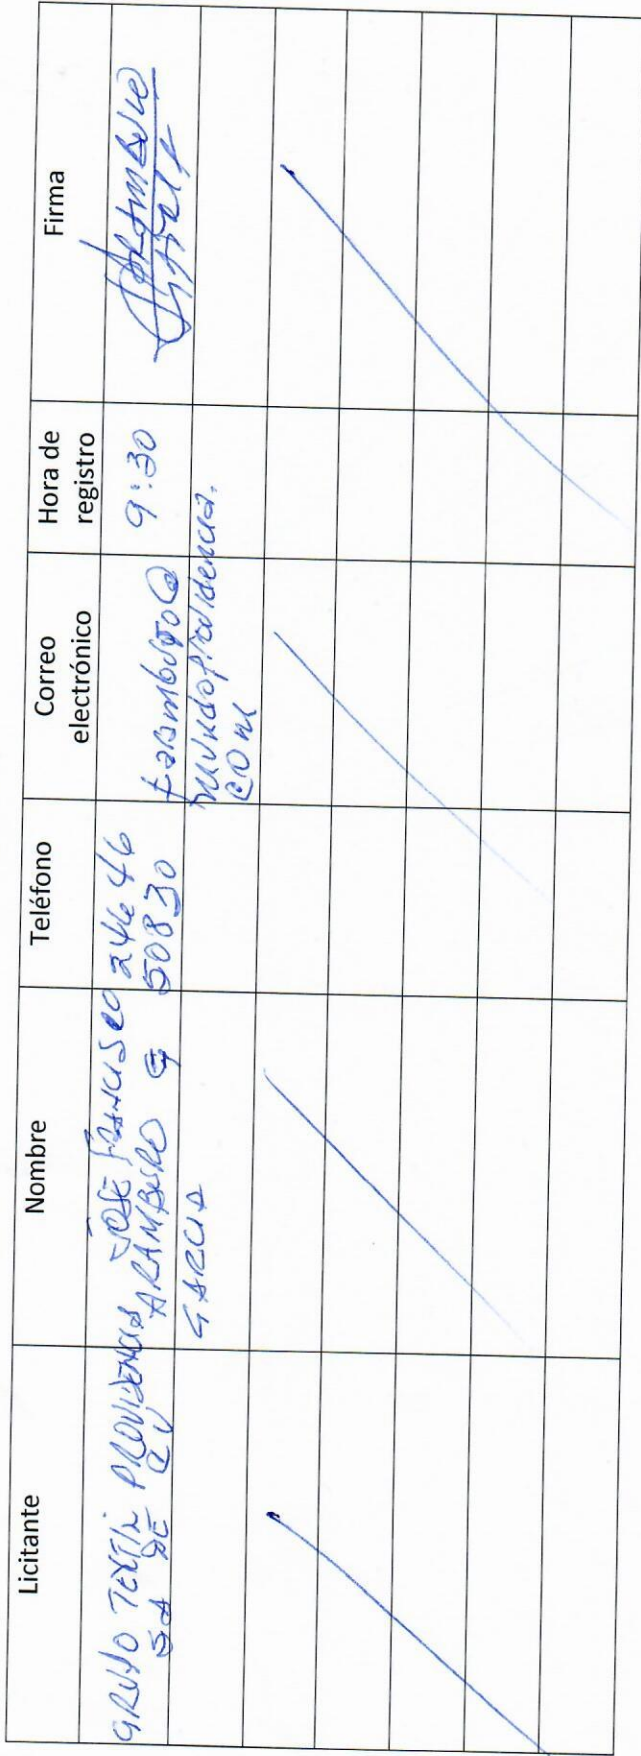 Licitante
Nombre
Teléfono
Correo electrónico
Hora de registro
Firma
GRUPO TEXTIL PROVIDENCIA
SA DE CV
JOSE FRANCISCO
ARAMBURO G
GARCIA
246 46
50830
faramburo@
mundoprovidencia.
com
9:30